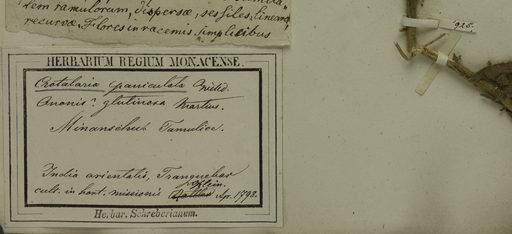 tem ramulorum, dispersae, sessiles, linear
recurvae. Flores in racemis simplicibus
925.
HERBARIUM REGIUM MONACENSE.
Crotalaria paniculata Willd.
Ononis? glutinosa Martius.
Minanschui Tamulice.
India orientalis, Tranquebar
cult. in hort. missionis Klein. Apr. 1798.
Herbar. Schreberianum.